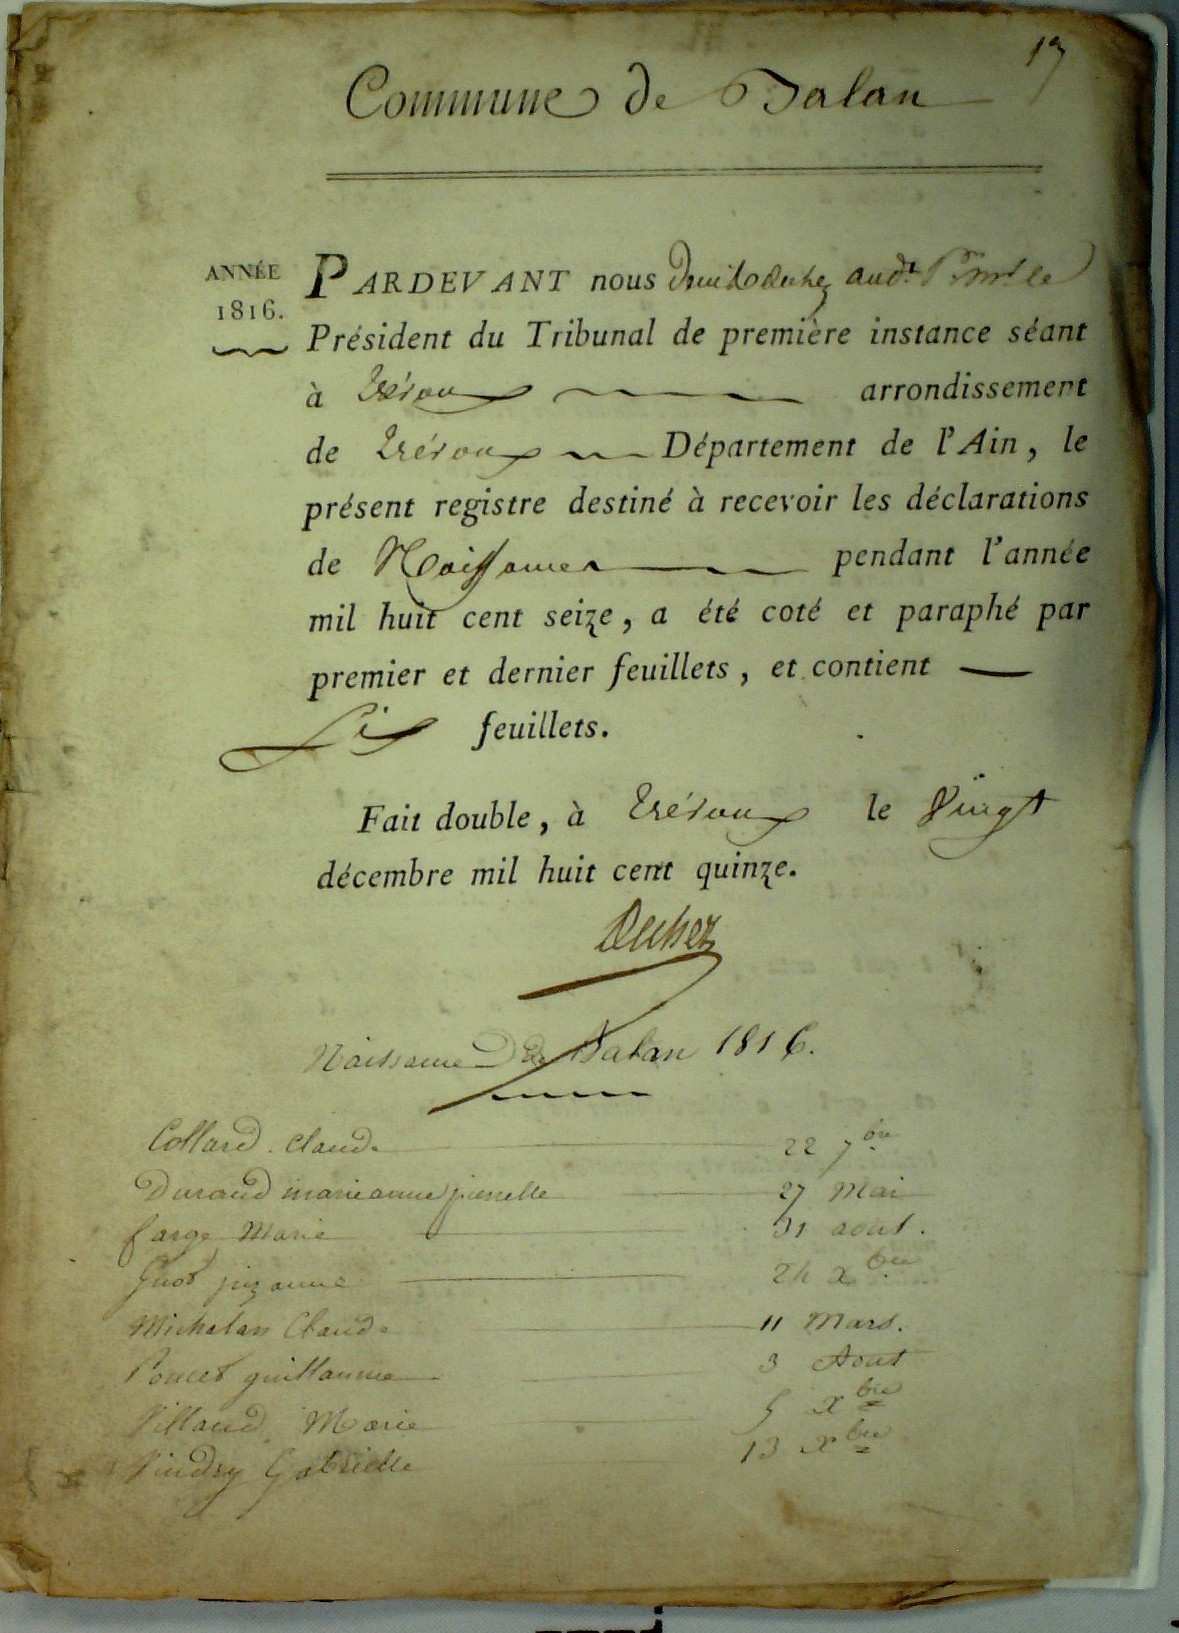 17
Commune de Balan
ANNÉE
1816.
PARDEVANT nous audr. Pour le
Président du Tribunal de première instance séant
à Trévoux arrondissement
de Trévoux Département de l'Ain, le
présent registre destiné à recevoir les déclarations
de Naissances pendant l'année
mil huit cent seize, a été coté et paraphé par
premier et dernier feuillets, et contient
six feuillets.
Fait double, à Trévoux le Vingt
décembre mil huit cent quinze.
Dechez
Naissance De Balan 1816.
Collard Claude 22 7bre
Durand marieanne pierrette 27 Mai
farge Marie 31 aout.
Guot suzanne 24 xbre
Michelan Claude 11 Mars.
Poncet guillaume 3 Aout
Villand Marie 5 xbre
Vindry Gabrielle 13 xbre